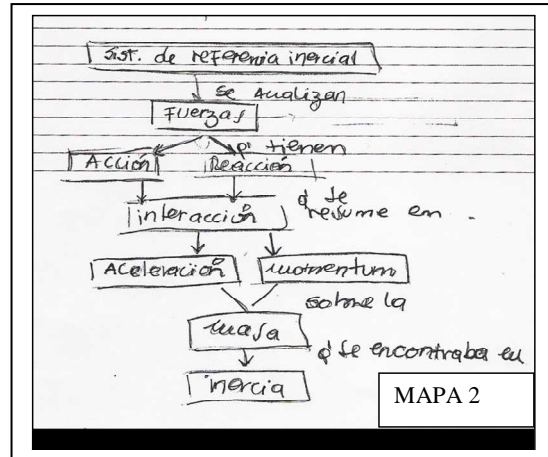 Sist. de referenia inercial
se analizan
Fuerzas
q' tienen
Acción Reacción
interacción q' se
resume en
Aceleración momentum
sobre la
masa
q' se encontraba en
inercia
MAPA 2